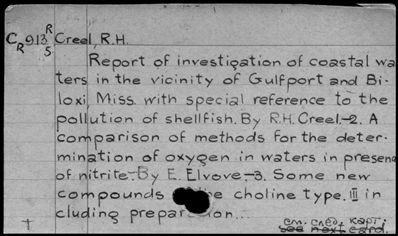 C_R 913 R/5 Creel, R.H.
Report of investigation of coastal wa
ters in the vicinity of Gulfport and Bi-
loxi, Miss. with special reference to the
pollution of shellfish. By R.H. Creel.-2. A
comparison of methods for the deter-
mination of oxygen in waters in presenc
of nitrite.-By E. Elvove.-3. Some new
compounds choline type. III in
cluding prepar on...
see next card.